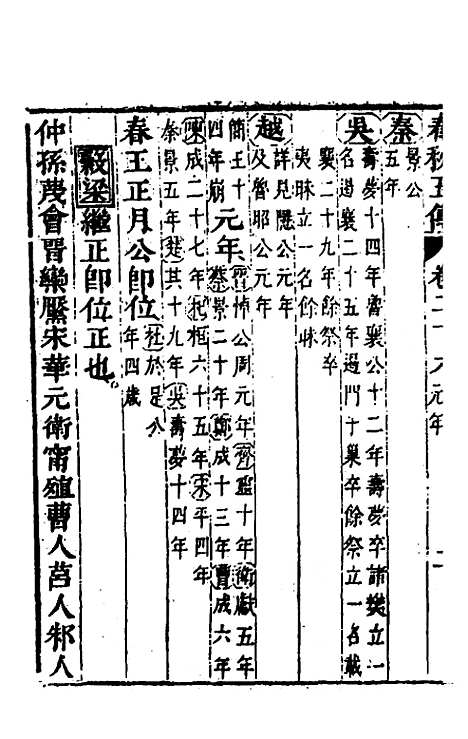 春秋五傳 卷二十六元年
秦 景公
五年
吳 壽夢十四年魯襄公十二年壽夢卒諸樊立一
名遏襄二十五年遏門于巢卒餘祭立一名戴
襄二十九年餘祭卒
夷昧立一名餘昧
越 詳見隱公元年
及魯昭公元年
簡王十
四年崩
元年 晉悼公周元年齊靈十年衛獻五年
蔡景二十年鄭成十三年曹成六年
陳成二十七年杞桓六十五年宋平四年
秦景五年楚共十九年吳壽夢十四年
春王正月公卽位 杜於是公
年四歲
穀梁繼正卽位正也
仲孫蔑會晉欒黶宋華元衛甯殖曹人莒人邾人